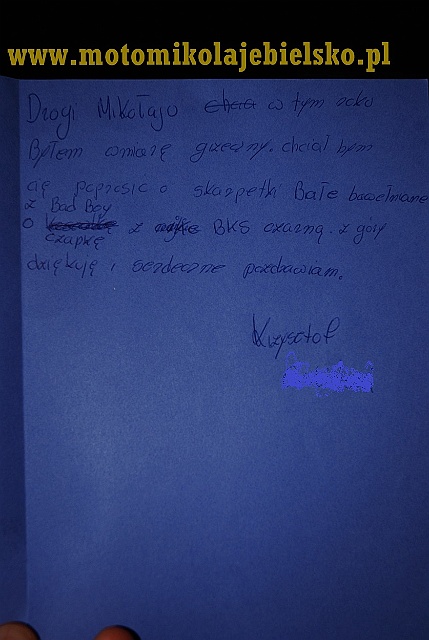 www.motomikolajebielsko.pl
Drogi Mikołaju chcia w tym roku
Byłem wmiarę grzeczny. chciał bym
cię poprosic o skarpetki Białe bawełniane
z Bad Boy
o czapkę z BKS czarną. z góry
dziękuję i serdeczne pozdrawiam.
Krzysztof